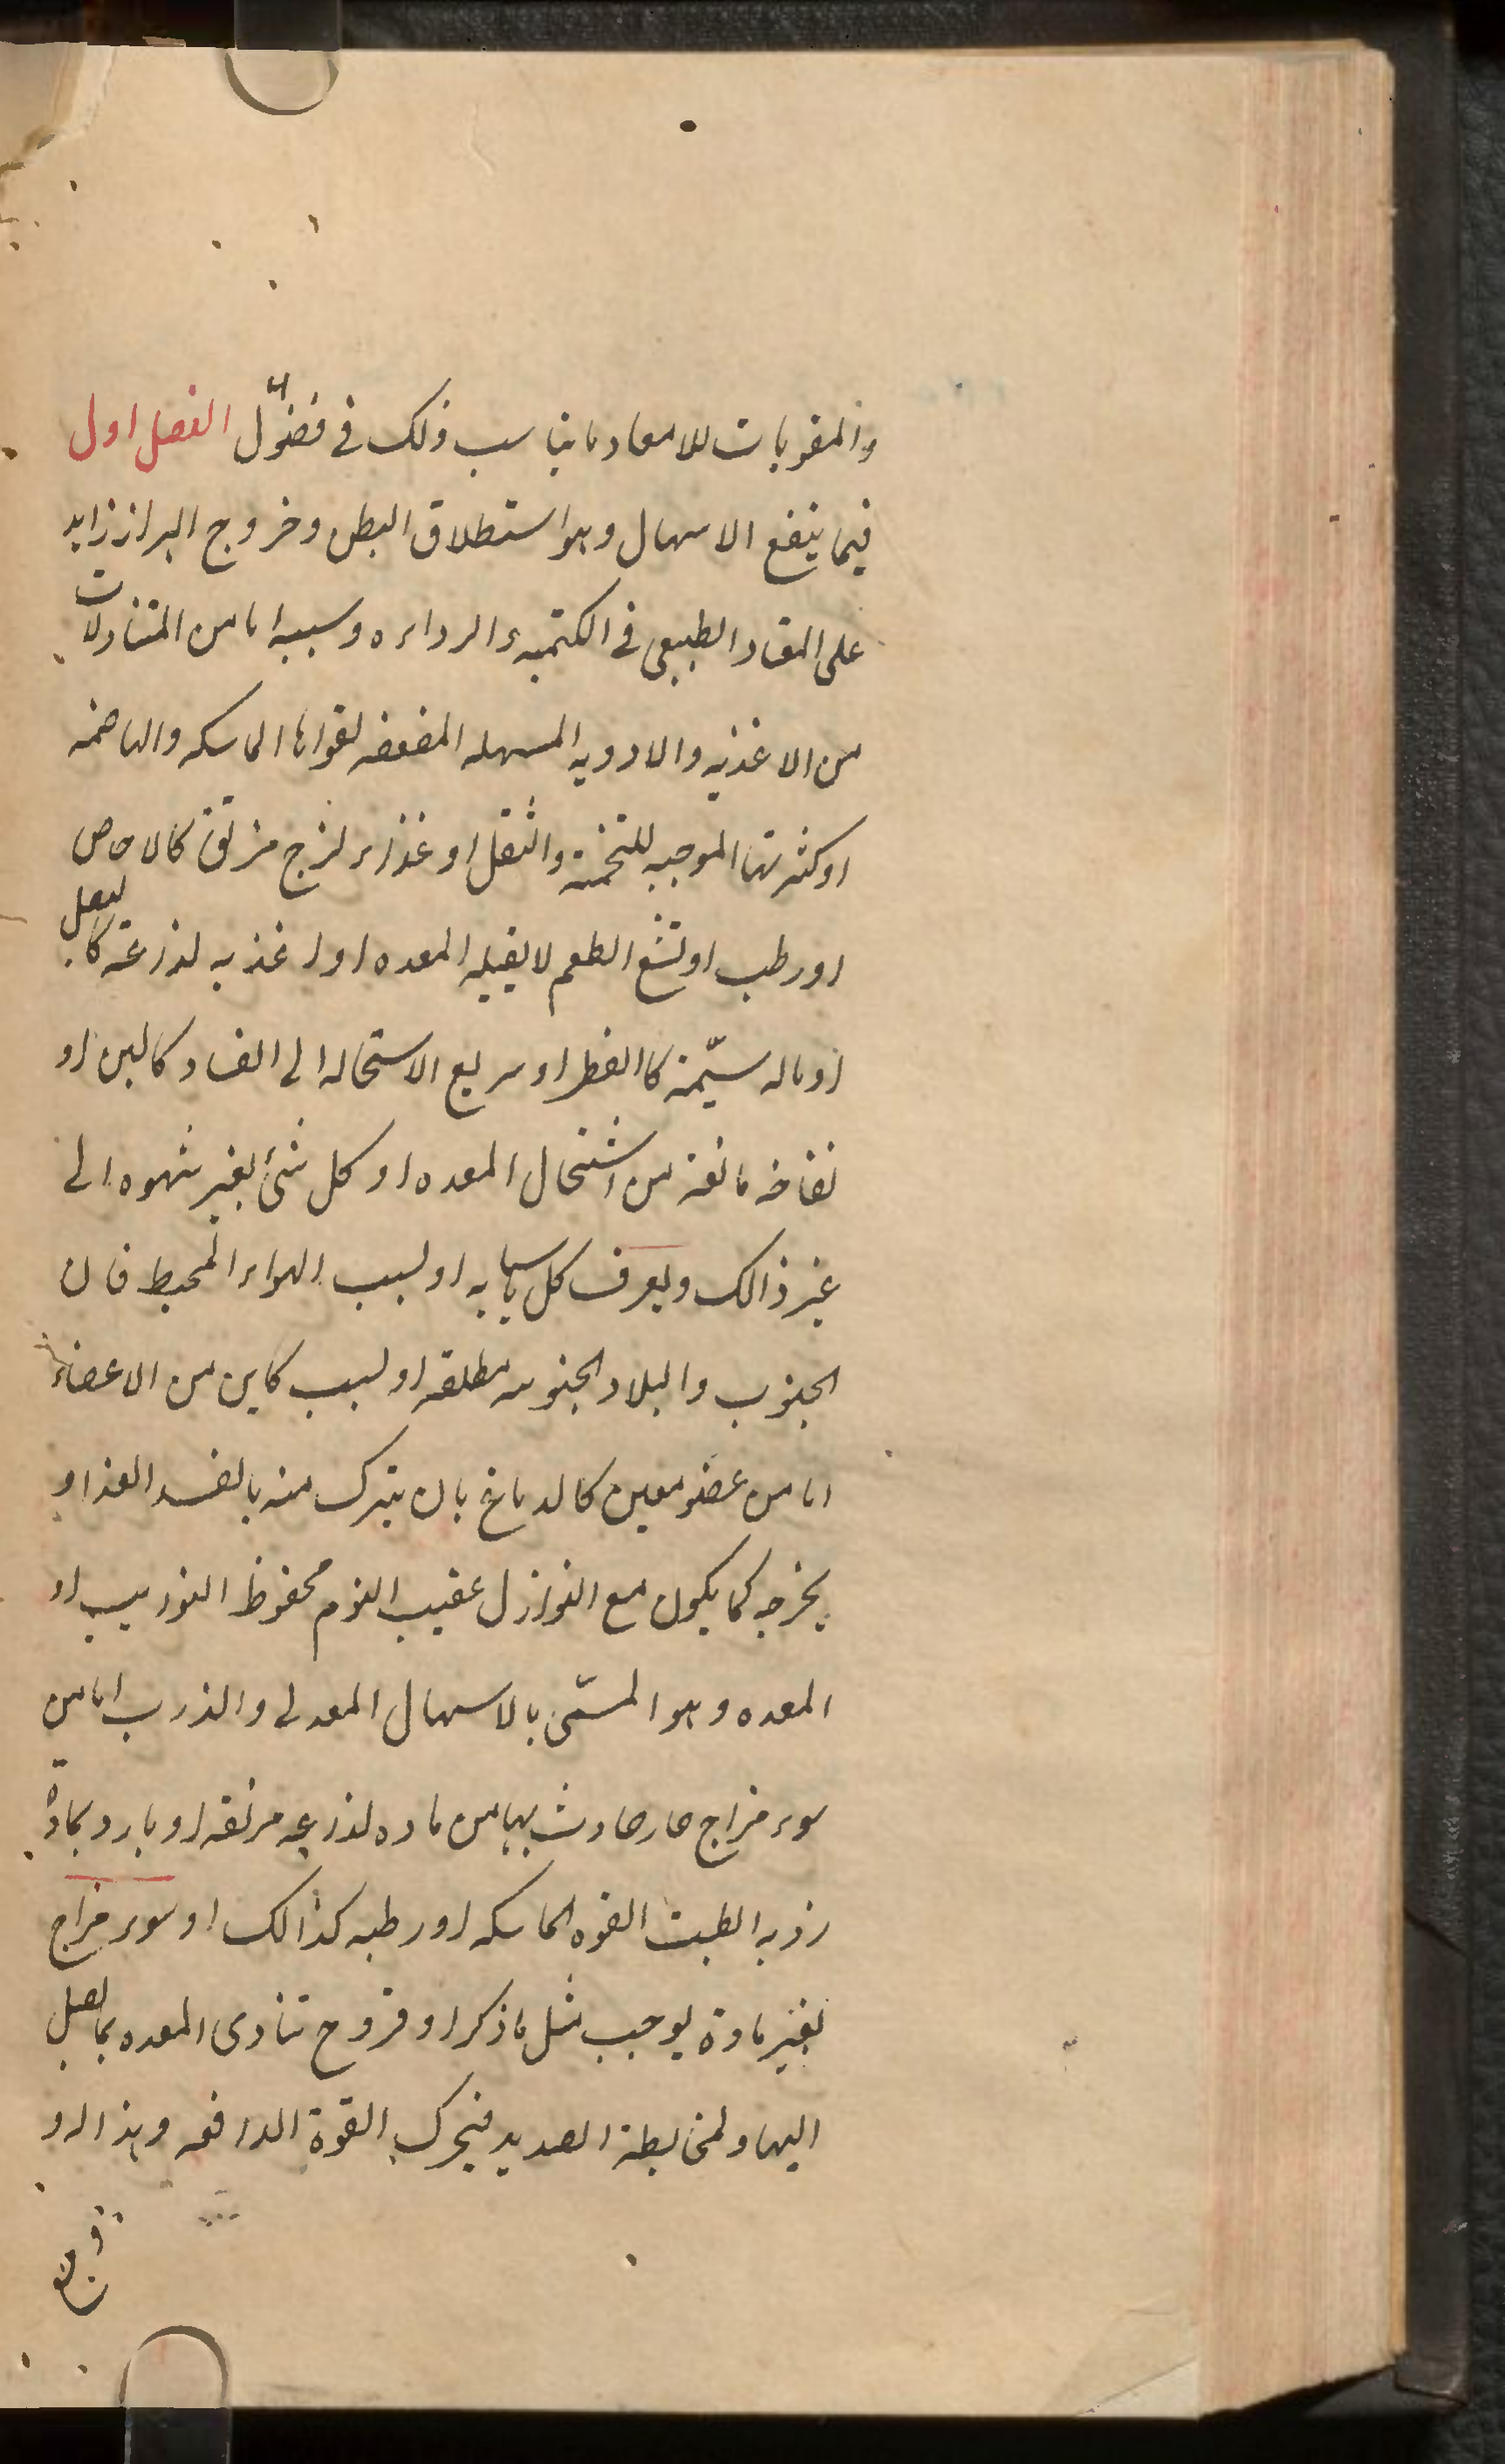 والمقويات للامعا وما يناسب ذلك في فصول الفصل اول
فيما ينفع الاسهال وهو استطلاق البطن وخروج البراز زايد
على المقاد الطبيعى في الكميه والرداءه وسببه اما من المتناولات
من الاغذيه والادويه المسهله المضعفه لقواها الماسكه والهاضمه
او كثرتها الموجبه للتخمة والثقل او غذاء لزج مزلق كالاجاص
او رطب او تشع الطعم لا يقبله المعده او اغذيه لذاعة كالبصل
او ماله سيّمة كالفطر او سريع الاستحاله الى الفساد كالبن او
نفاخه مانعة من اشتمال المعده او كل شئ بغير شهوه الى
غير ذالك ويعرف كل باسبابه او لسبب الهواء المحيط فان
الجنوب والبلاد الجنوبيه مطلقه او لسبب كاين من الاعضاء
اما من عضو معين كالدماغ بان ينزل منه ما يفسد الغذا و
يخرجه كما يكون مع النوازل عقيب النوم محفوظ النوايب او
المعده وهو المسمّى بالاسهال المعدى والذرب اما من
سوء مزاج حار حادث بها من ماده لذاعه مزلقه او بارد بمادة
رديه الطبت القوه الماسكه او رطبه كذالك او سوء مزاج
بغير مادة يوجب مثل ما ذكر او قروح تتاذى المعده بما يصل
اليها ولمخالطة الصديد فيحرك القوة الدافعه وهذا ارد